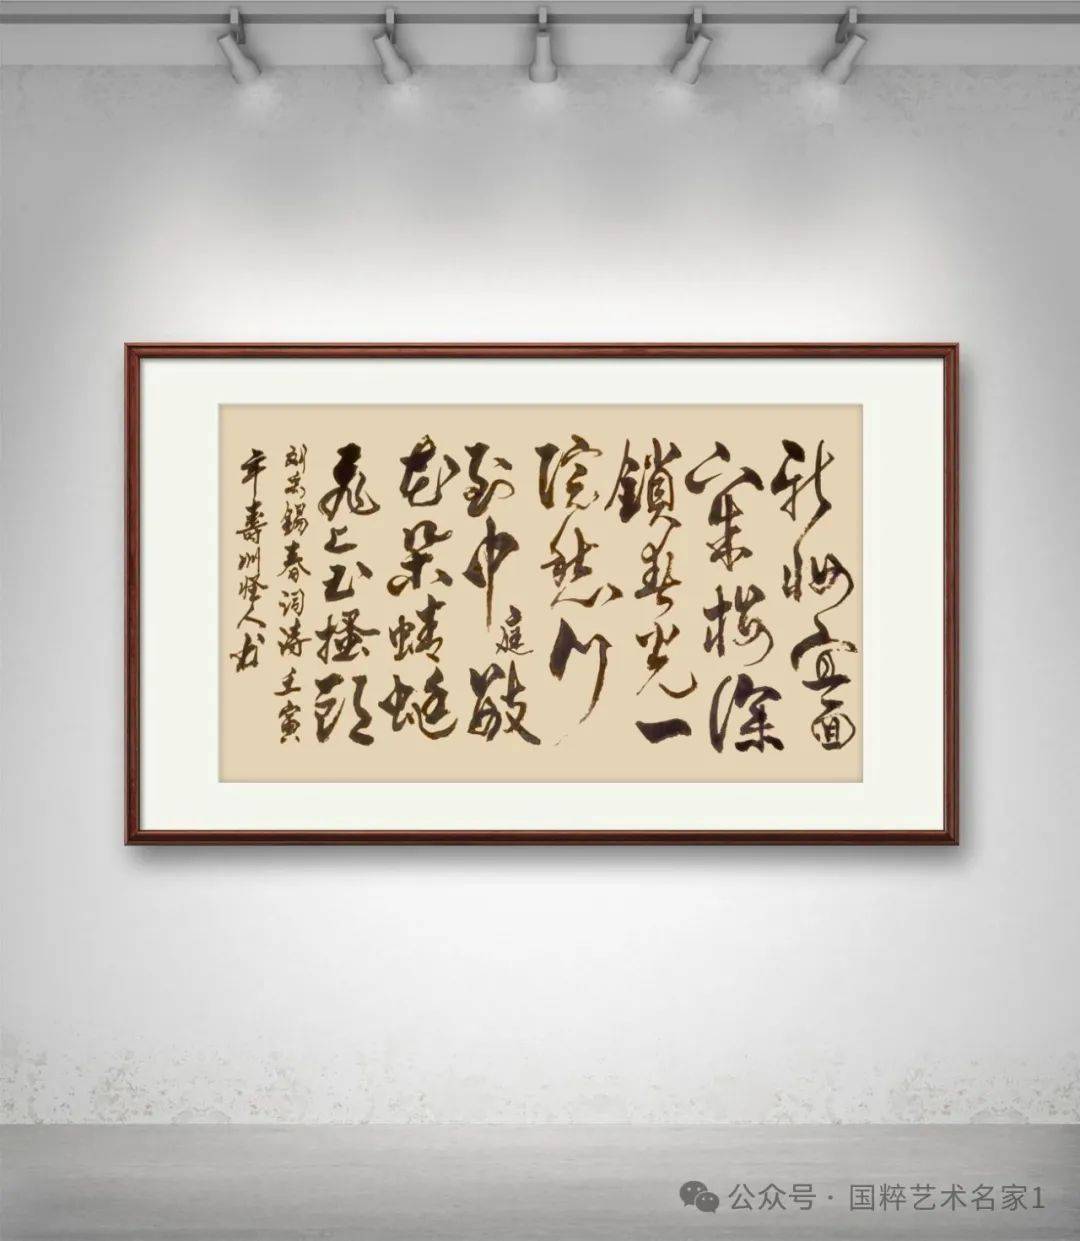 新妝宜面
下朱樓深
鎖春光一
院愁行
到中庭數
花朵蜻蜓
飛上玉搔頭
刘禹錫春词诗壬寅
年壽州怪人书
公众号 · 国粹艺术名家1